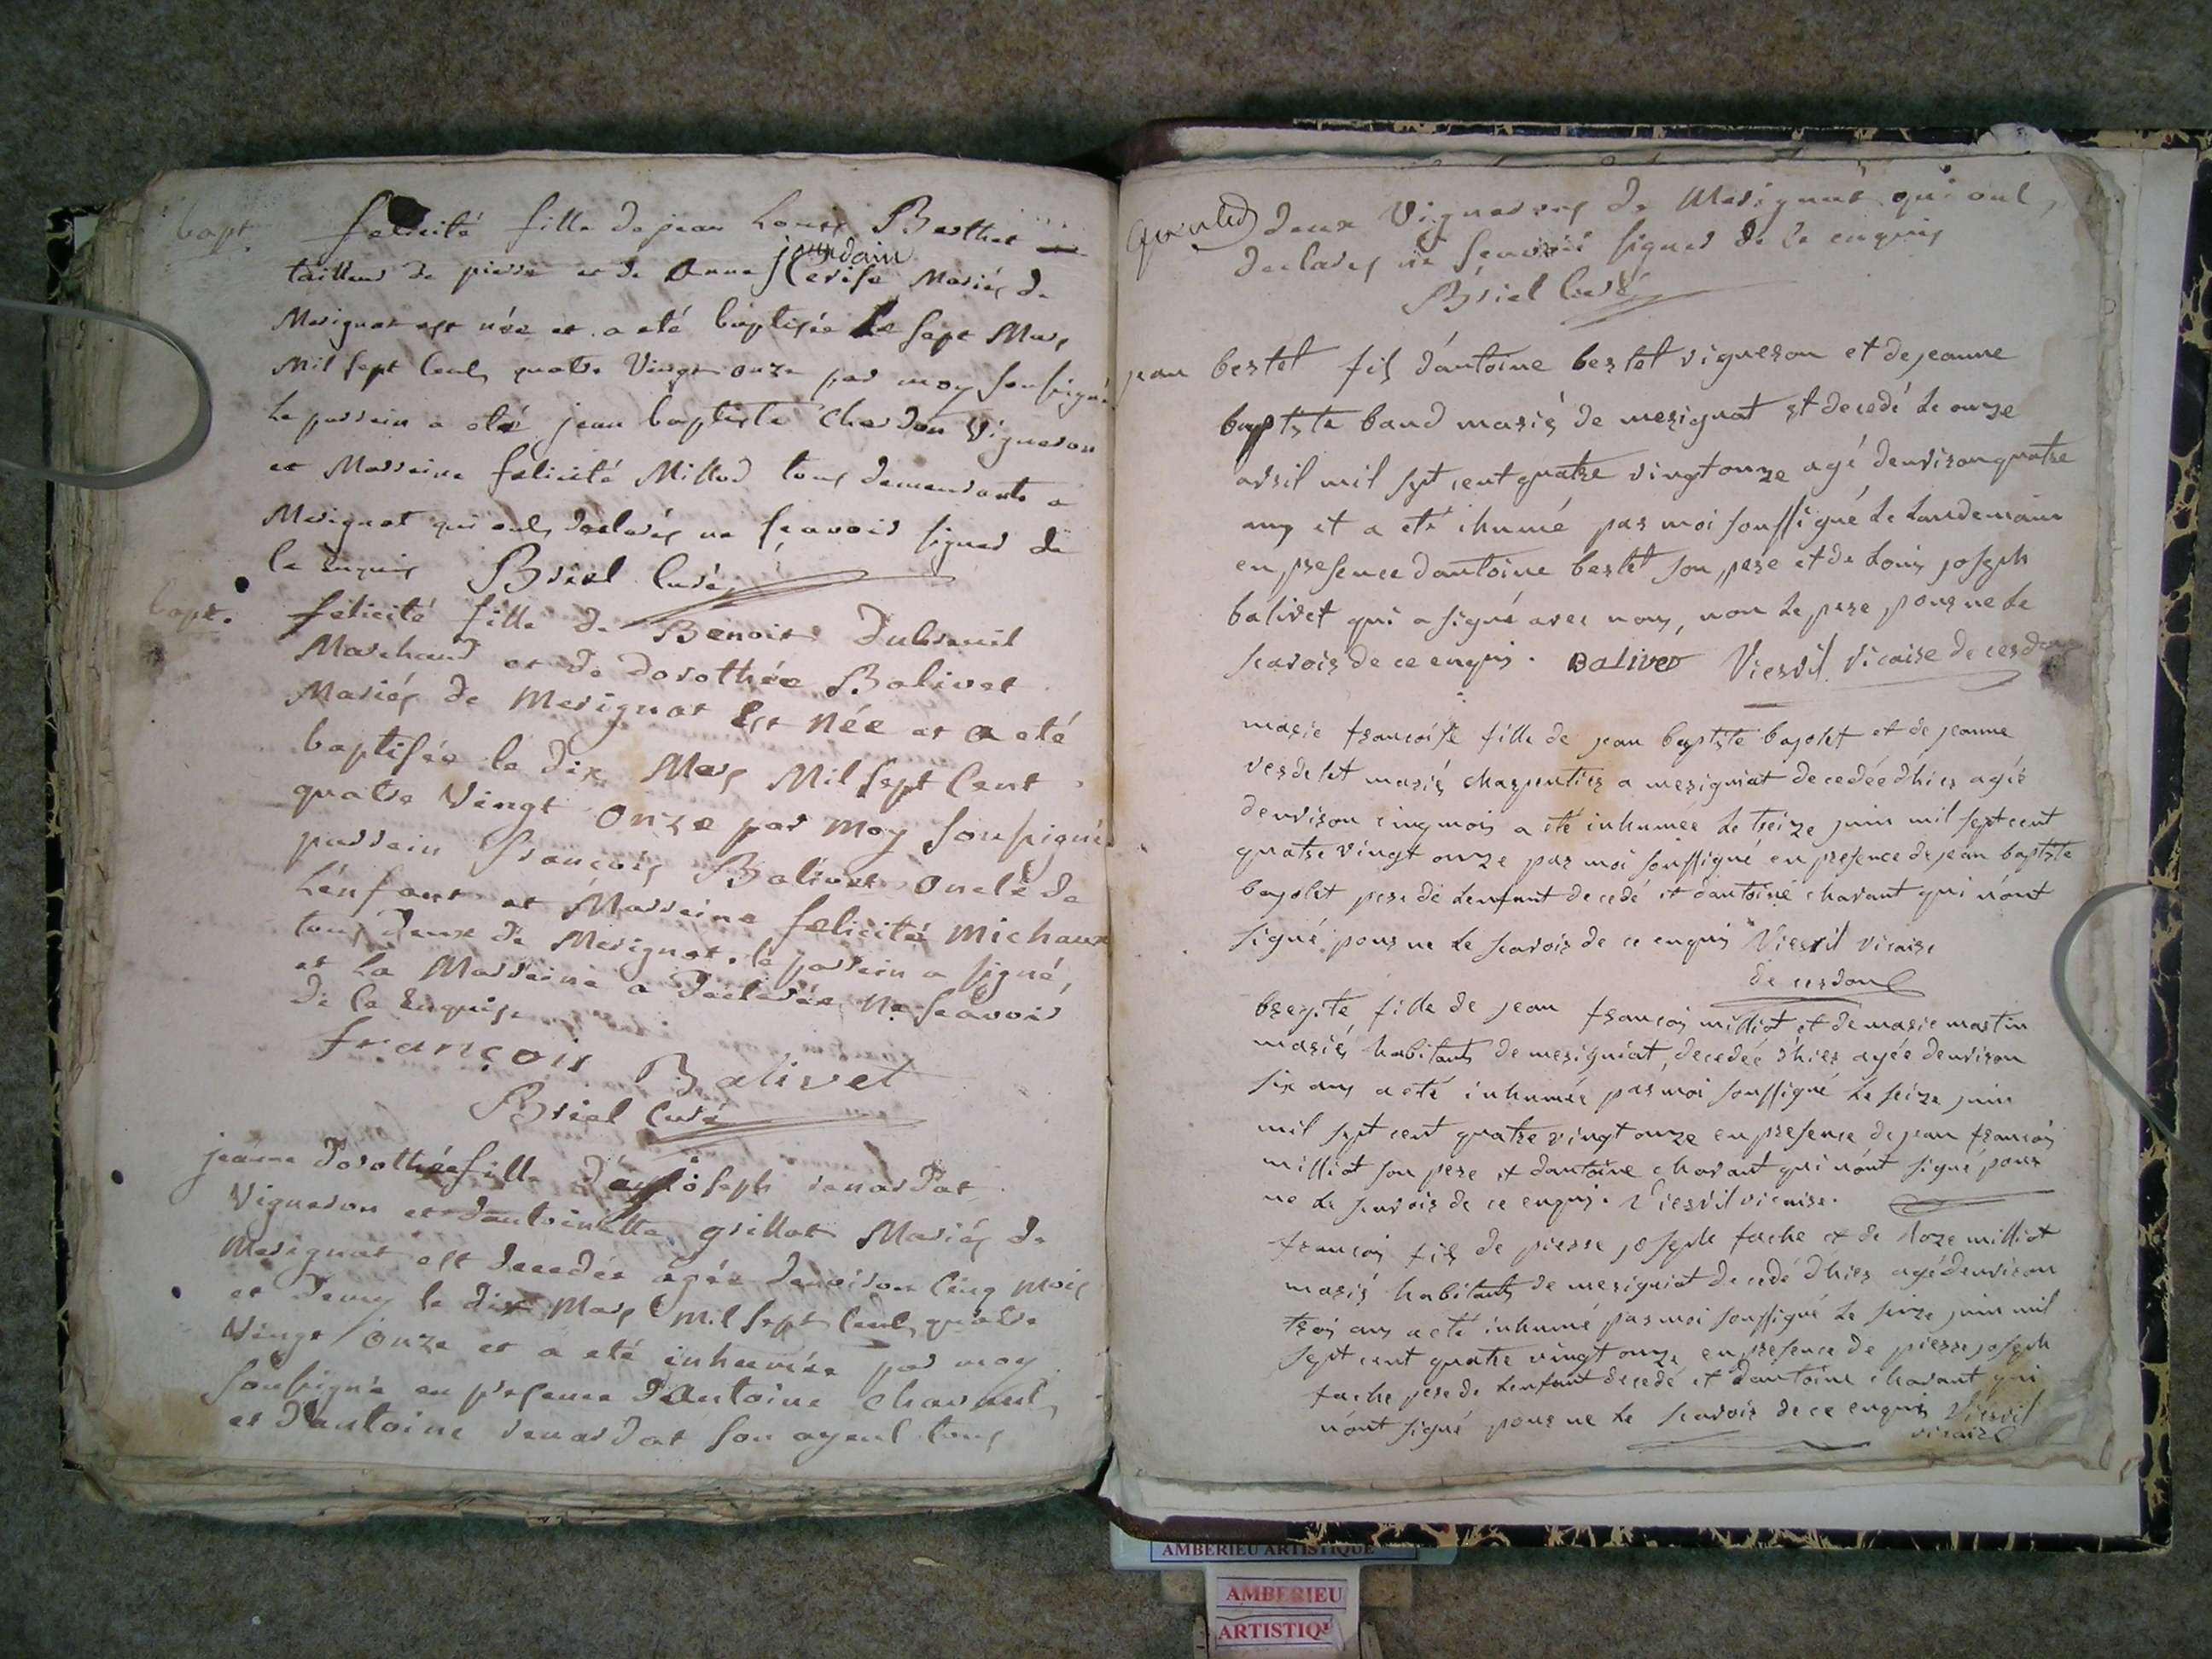 bapt.
felicité fille de jean Louis Berthet
jourdain
tailleur de pierre et de Anne Cerise Mariés de
Merignat est née et a eté baptisée Le sept Mars
Mil sept Cents quatre Vingt onze par moy soussigné
Le parrein a eté jean baptiste Chardon Vigneron
et Marreine felicité Millod tous demeurants a
Merignat qui ont declarés ne sçavoir signer de
ce enquis Briel Curé
bapt.
felicité fille de Benoit Dubreuil
Marchand et de Dorothée Balivet
Mariés de Merignat Est Née et a eté
baptisée le dix Mars Mil sept Cent
quatre Vingt Onze par moy soussigné
parrein françois Balivet Oncle de
L'enfant et Marreine felicité Michaux
tous deux de Merignat. le parrein a signé,
et La Marreine a declarée Ne sçavoir
de ce Enquise
françois Balivet
Briel Curé
jeanne Dorothée fille d'ay joseph renardat
Vigneron et d'antoinette grillot Mariés de
Merignat est decedée agée denviron Cinq Mois
et demy le dix Mars Mil sept Cents quatre
Vingt Onze et a eté inhumée par moy
soussigné en presence d'Antoine Charvant
et d'antoine renardat son ayeul tous
deux Vignerons de Merignat qui ont
declarés ne sçavoir signer de ce enquis
Briel Curé
jean bertet fils d'antoine bertet vigneron et de jeanne
baptiste baud mariés de merignat et decedé le onze
avril mil sept cent quatre vingt onze agé denviron quatre
ans et a eté ihumé par moi soussigné le landemain
en presence dantoine bertet son pere et de Louis joseph
balivet qui a signé avec nous, non le pere pour ne le
scavoir de ce enquis. Balivet Viervil vicaire de cerdon
marie françoise fille de jean baptiste bajolet et de jeanne
verdelet mariés charpentier a merigniat decedée dhier agée
denviron cinq mois a eté inhumée le treize juin mil sept cent
quatre vingt onze par moi soussigné en presence de jean baptiste
bajolet pere de lenfant decedé et dantoine charant qui nont
signé pour ne le scavoir de ce enquis Viervil vicaire
de cerdon
bregite fille de jean françois milliot et de marie martin
mariés habitants de merigniat, decedée dhier agée denviron
six ans a eté inhumée par moi soussigné le seize juin
mil sept cent quatre vingt onze en presence de jean françois
milliot son pere et dantoine charant qui nont signé pour
ne le scavoir de ce enquis. Viervil vicaire.
françois fils de pierre joseph fache et de Roze milliot
mariés habitants de merigniat decedé dhier agé denviron
trois ans a eté inhumé par moi soussigné le seize juin mil
sept cent quatre vingt onze en presence de pierre joseph
fache pere de lenfant decedé et dantoine charant qui
nont signé pour ne le scavoir de ce enquis Viervil
vicaire
AMBERIEU ARTISTIQUE
AMBERIEU
ARTISTIQ